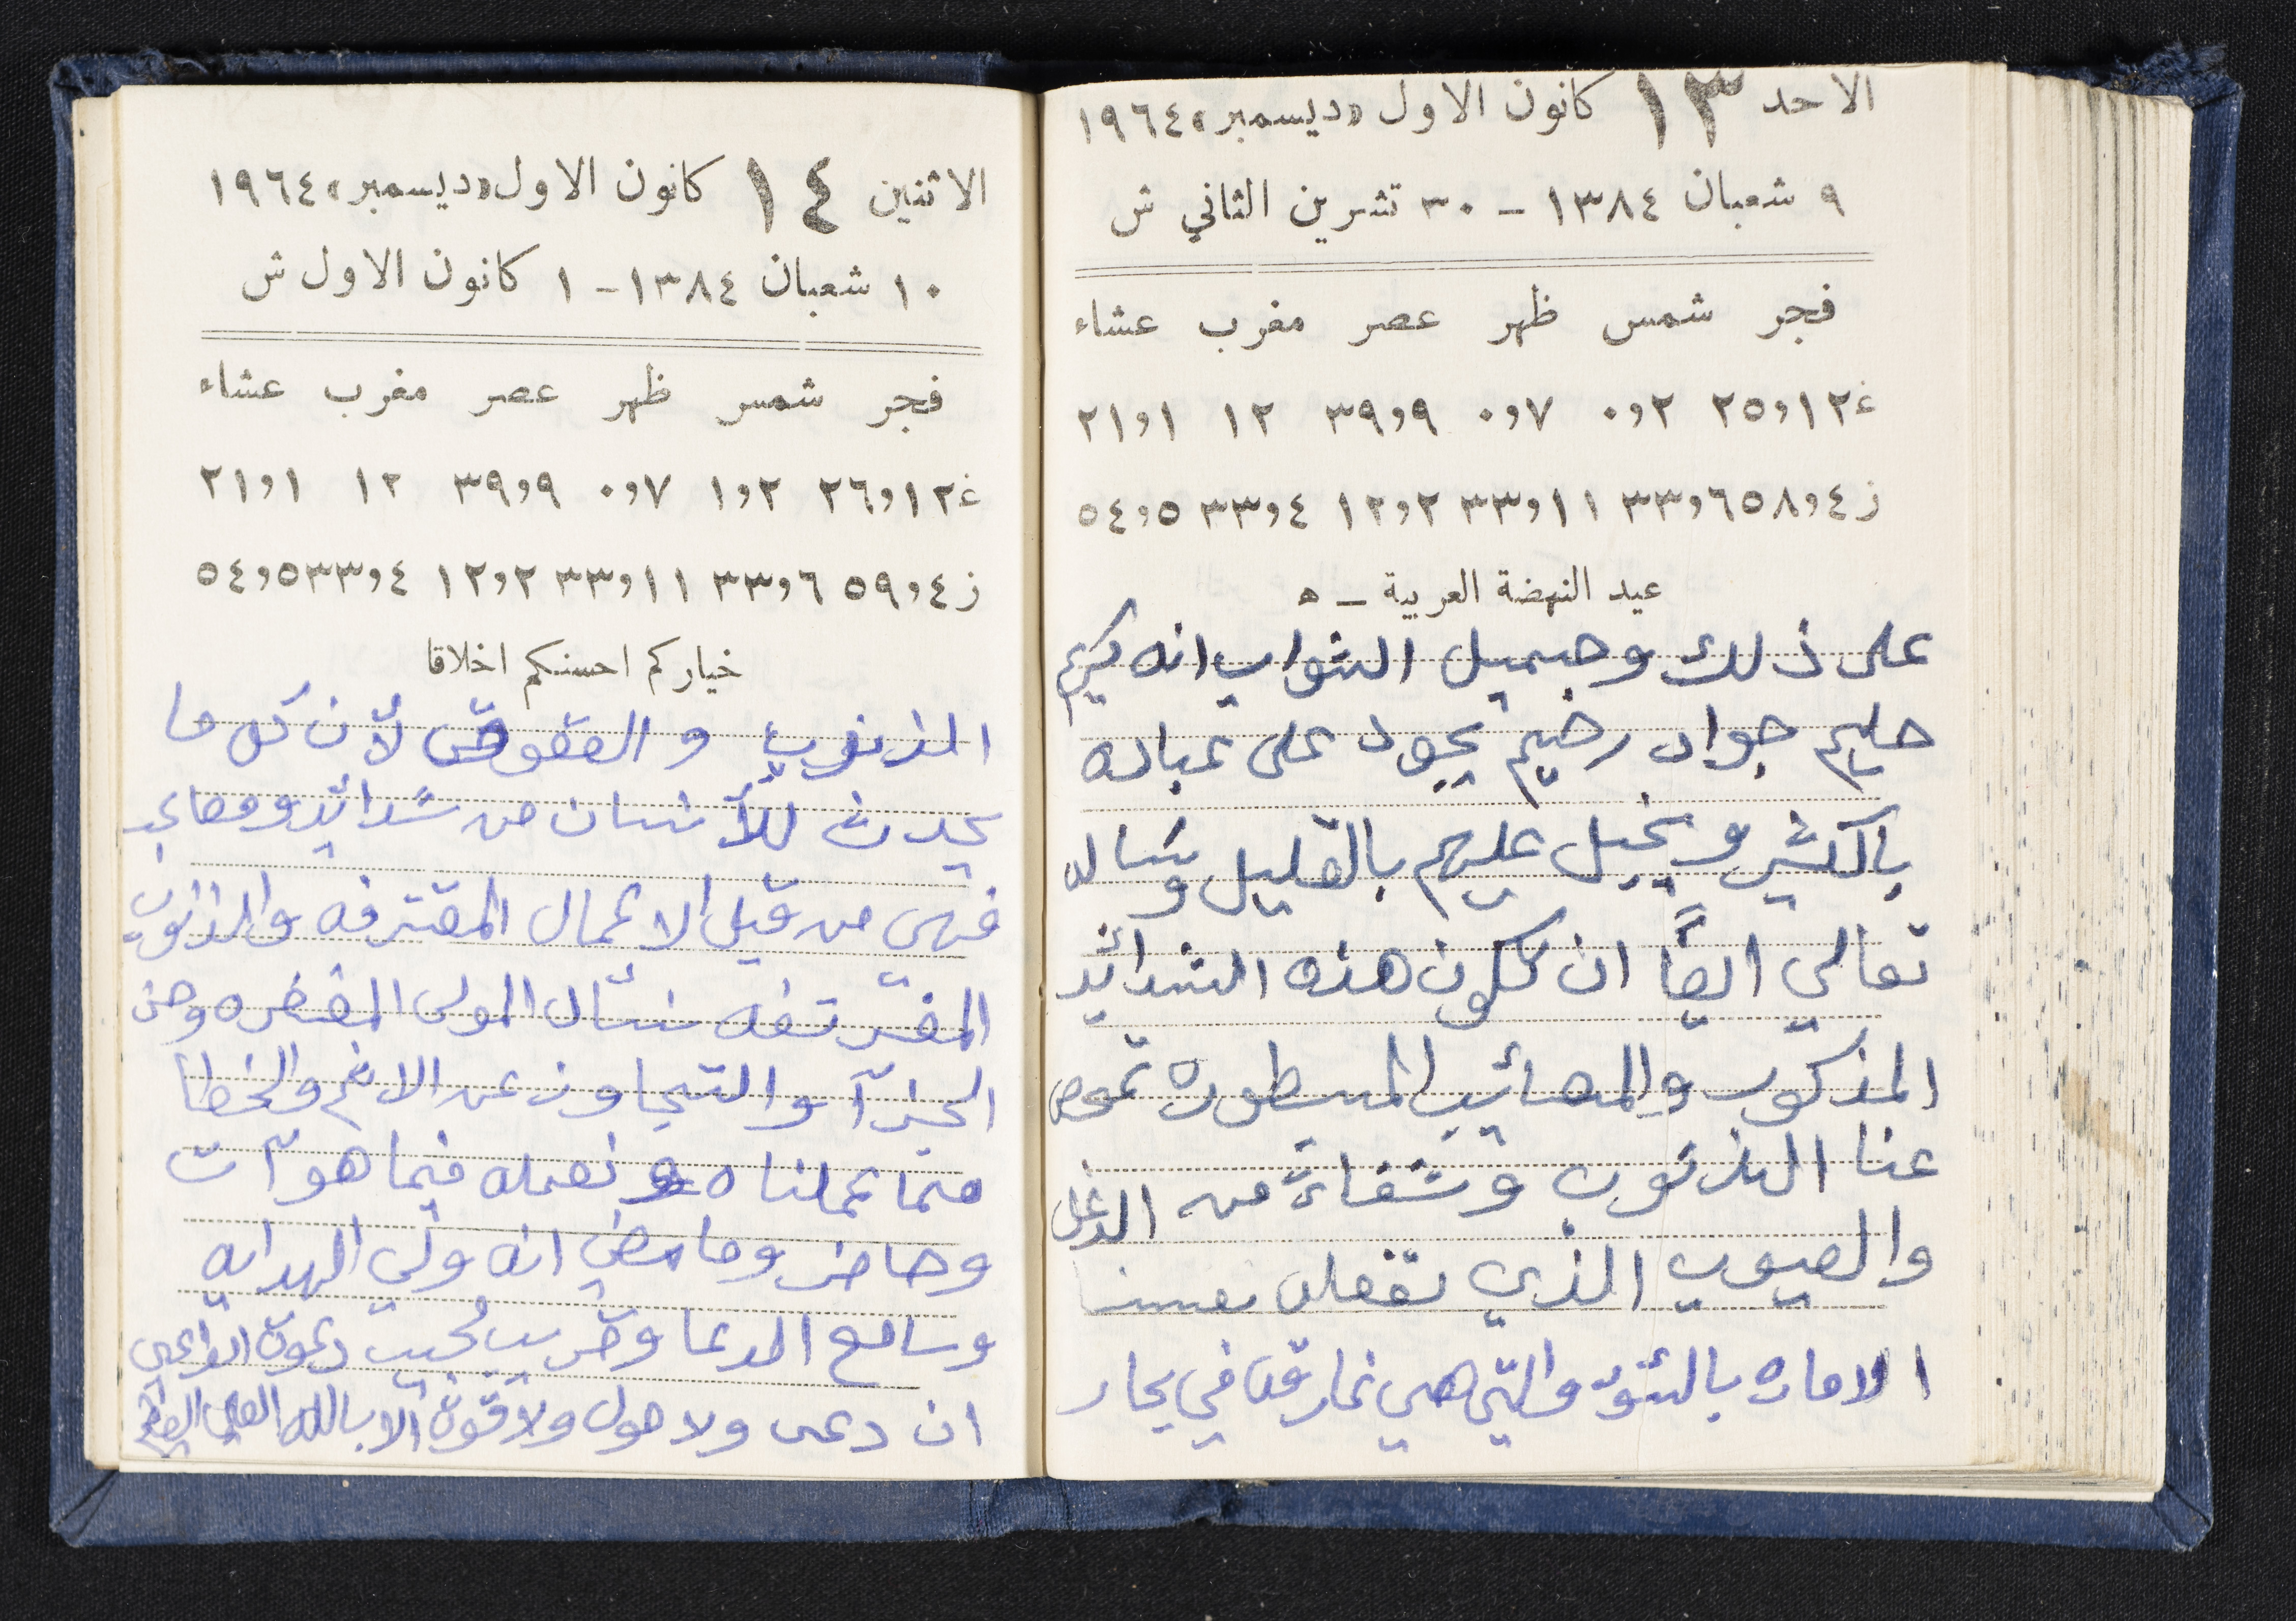 الاحد ١٣ كانون الاول «ديسمبر» ١٩٦٤
٩ شعبان ١٣٨٤ - ٣٠ تشرين الثاني ش
فجر شمس ظهر عصر مغرب عشاء
غ ١٢,٢٥ ٢,٠ ٧,٠ ٩,٣٩ ١٢ ١,٢١
ز ٤,٥٨ ٦,٣٣ ١١,٣٣ ٢,١٢ ٤,٣٣ ٥,٥٤
عيد النهضة العربية - ه
على ذلك وجميل الثواب انه كريم
حليم جواد رحيم يجود على عباده
بالكثير ويخيل عليهم بالقليل ونساله
تعالي ايضاً ان تكون هذه الشدائد
المذكور والمصائب المسطوره تمحص
عنا الذنوب وشفاءً من الدغل
والعيوب الذي تفعلها نفسنا
الاماره بالسؤ والتي هي غارقه في بحار
الاثنين ١٤ كانون الاول «ديسمبر» ١٩٦٤
١٠ شعبان ١٣٨٤ - ١ كانون الاول ش
فجر شمس ظهر عصر مغرب عشاء
غ ١٢,٢٦ ٢,١ ٧,٠ ٩,٣٩ ١٢ ١,٢١
ز ٤,٥٩ ٦,٣٣ ١١,٣٣ ٢,١٢ ٤,٣٣ ٥,٥٤
خياركم احسنكم اخلاقا
الذنوب و العقوق لأن كل ما
يحدث للأنسان من شدائد ومصاعب
فهى من قبل الاعمال المقترفه والذنوب
المقترتفه نسأل المولى المغفره وحسن
الجزآ والتجاوز عن الاثم والخطا
مما عملناه ونعمله فيما هو آت
وحاضر وما مضي انه ولي الهدايه
وسامع الدعا وقريب مجيب دعوة الداعي
ان دعى ولا حول ولا قوة الا بالله العلي العظيم